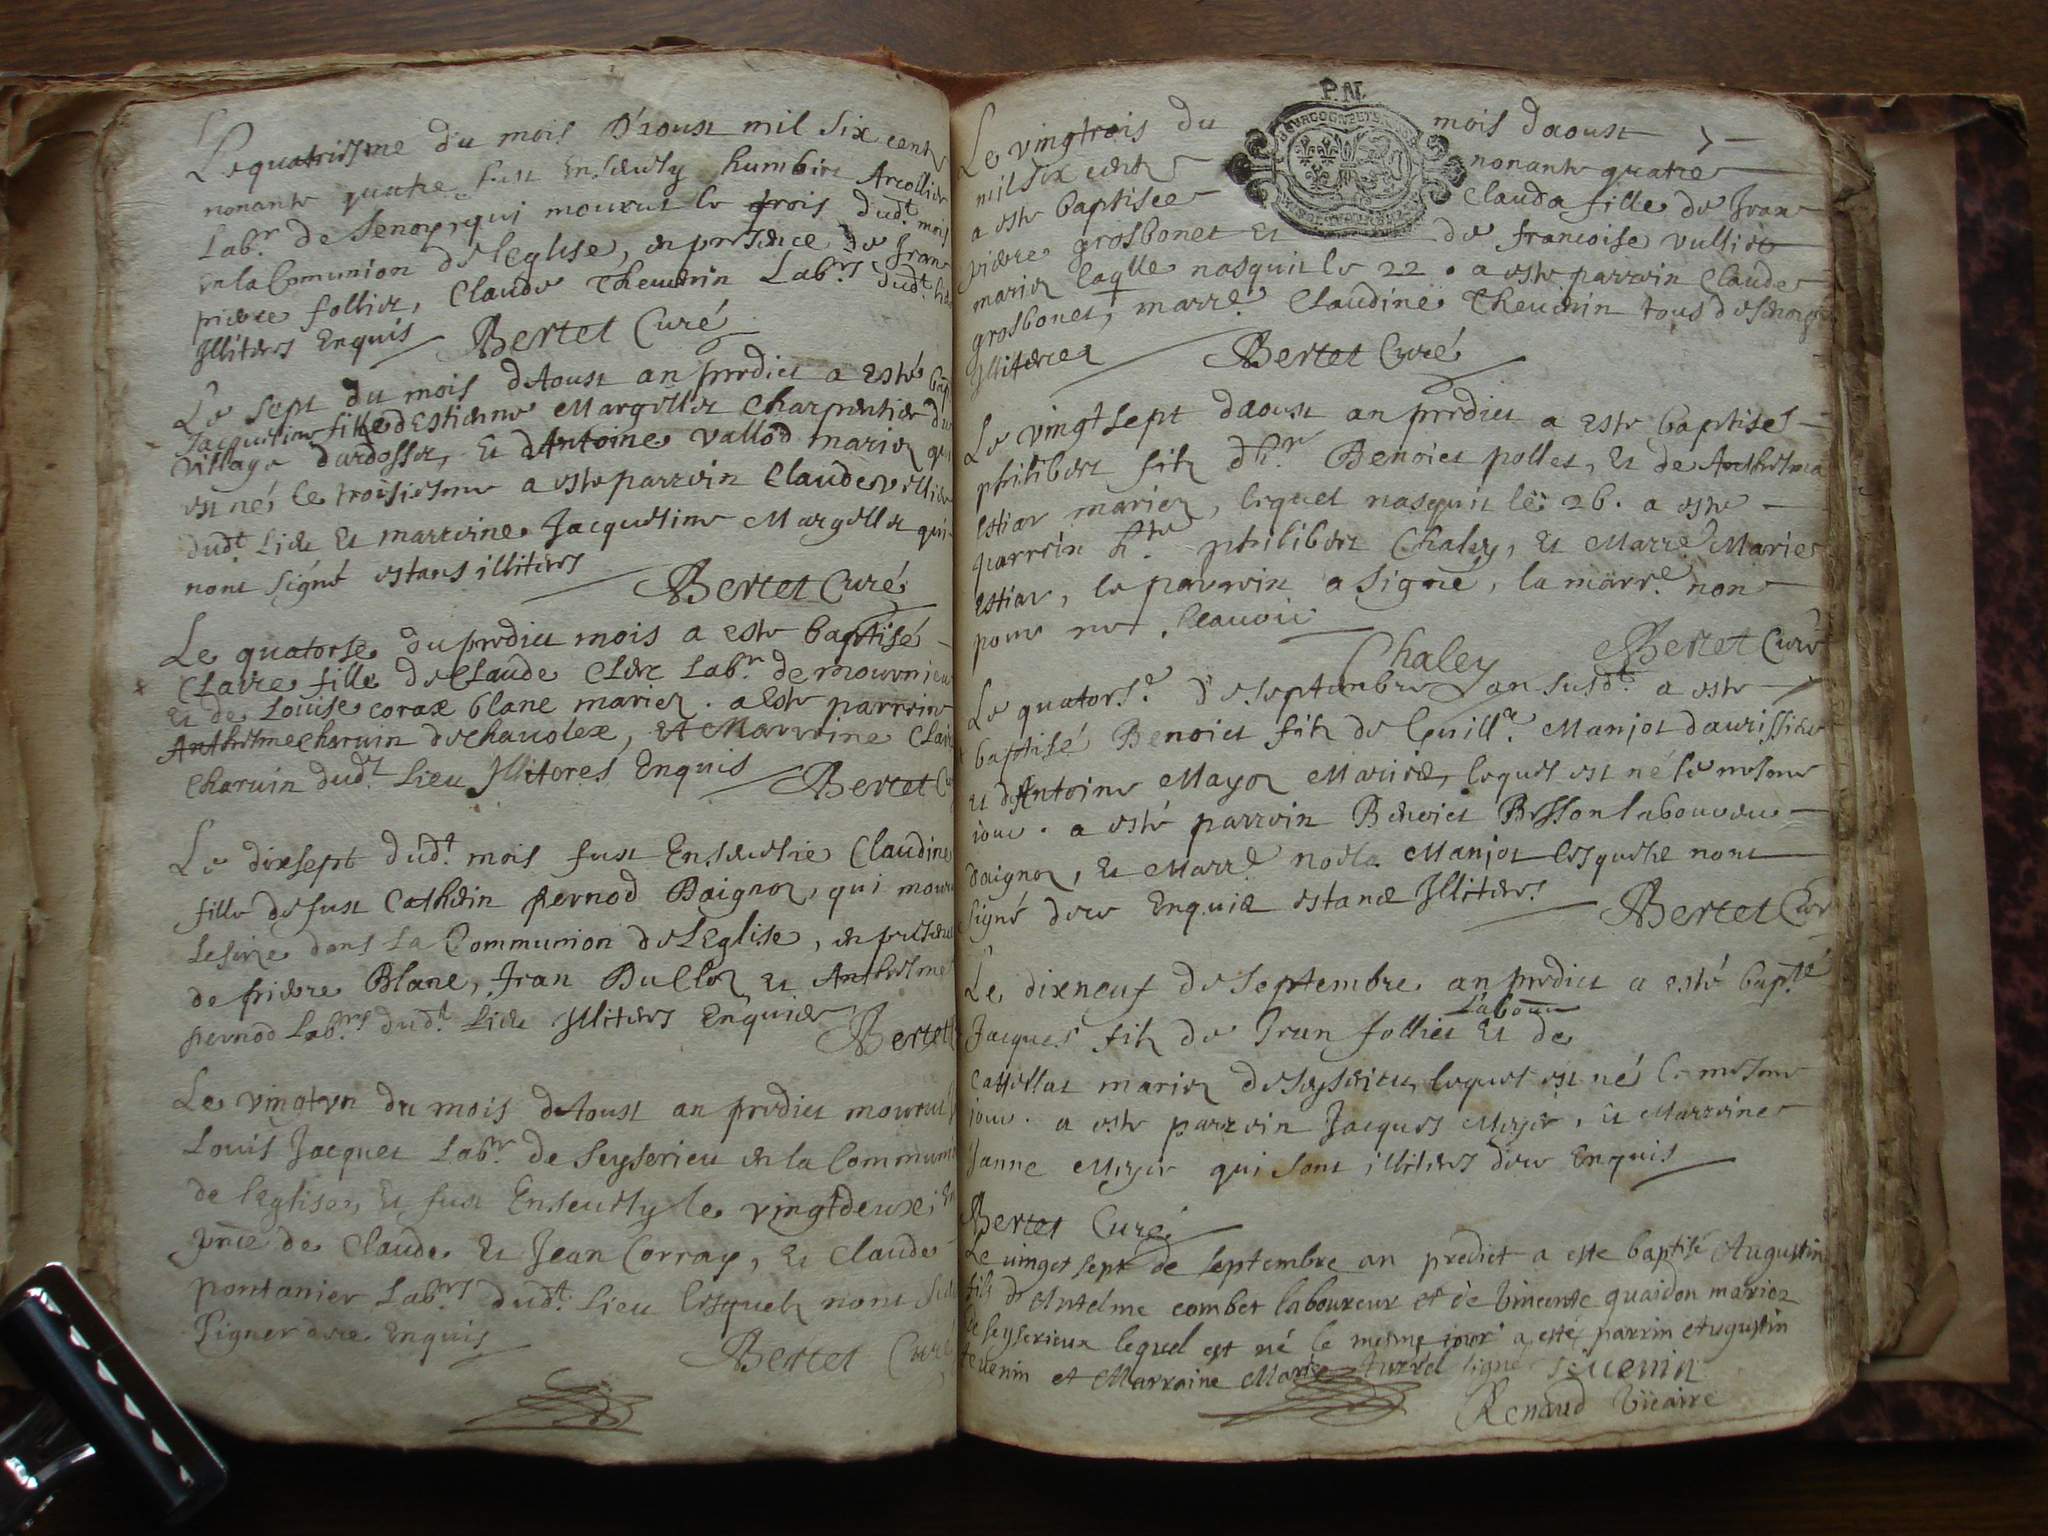 Le quatriesme du mois d'aoust mil six cents
nonante quatre fust Ensevely humbert Arcollier
Labr. de Senoy, qui mourut le trois dudt. mois
en la Comunion de leglise, en presence de Jean
pierre follier, Claude Thevenin Labrs. dudt.
Illiteres Enquis Bertet Curé
Le sept du mois dAoust an predict a esté
Jacqueline fille dEstienne Margellet Charpentier du
village dardosset, et dAntoine Vallod mariez
est né le troisiesme a este parrein Claude
dudt. Lieu et marreine Jacqueline Margellet qui
nont signé estans illiteres
Bertet Curé
Le quatorse du predict mois a este baptisé
Claire fille de Claude Clerc Labr. de
et de Louise corax blanc mariez. a este parrein
Anthelme Charuin de chaudex, et Marreine
Charuin dudt. Lieu Illiteres Enquis
Bertet
Le dixsept dudt. mois fust Ensevelie Claudine
fille de fust Cathein pernod Daignoz, qui
dans La Communion de LEglise, en
de pierre Blanc, Jean Dulloz et Anthelme
pernod Labrs. dudt. Lieu Illiteres Enquier
Bertet
Le vingtvn du mois dAoust an predict mourut
Louis Jacquet Labr. de Seyserieu en la
de leglise, et fust Ensevely le vingtdeux;
pnce de Claude et Jean Corray, et Claude
pontanier Labrs. dudt. Lieu lesquelz nont
signer de ce Enquis
Bertet Curé
P.N.
Le vingtrois du mois daoust
mil six cents nonante quatre
a este baptisee Clauda fille de Jean
pierre grosbonet et de francoise vulliet
mariez laqlle nasquit le 22. a este parrein Claude
grosbonet, marre. Claudine Thevenin tous
Illiterez Bertet Curé
Le vingtsept daoust an predict a este baptisé
philibert filz dhr. Benoict pollet, et de Anthelma
Estiar mariez, lequel nasquit le 26. a este
parrein hte. philibert Chaley, et Marre. Marie
Estiar, le parrein a signé, la marre. non
pour ne Scauoir
Chaley Bertet Curé
Le quatorse de septembre an susdt. a este
baptisé Benoict filz de Guille. Manjot
et dAntoine Mayoz Mariez, lequel est né le mesme
iour. a esté parrein Benoict Bisson laboureur
daignoz, et Marre. noela Manjot lesquelz nont
signé de ce Enquiz estanz Illiteres.
Bertet Curé
Le dixneuf de septembre an predict a esté bapté.
Labour
Jacques filz de Jean follier et de
Cattellat mariez de seyserieu, lequel est né le mesme
iour. a este parrein Jacques Meyer, et Marreine
Janne Meyer qui sont illiteres de ce Enquis
Bertet Curé
Le uinget sept de septembre an predict a este baptisé Augustin
fils de Antelme combet laboureur et de Vincente quaidon mariez
de seyserieux lequel est né le mesme jour a esté parrin Augustin
teuenin et Marraine Marie signé teuenin
Renaud Vicaire